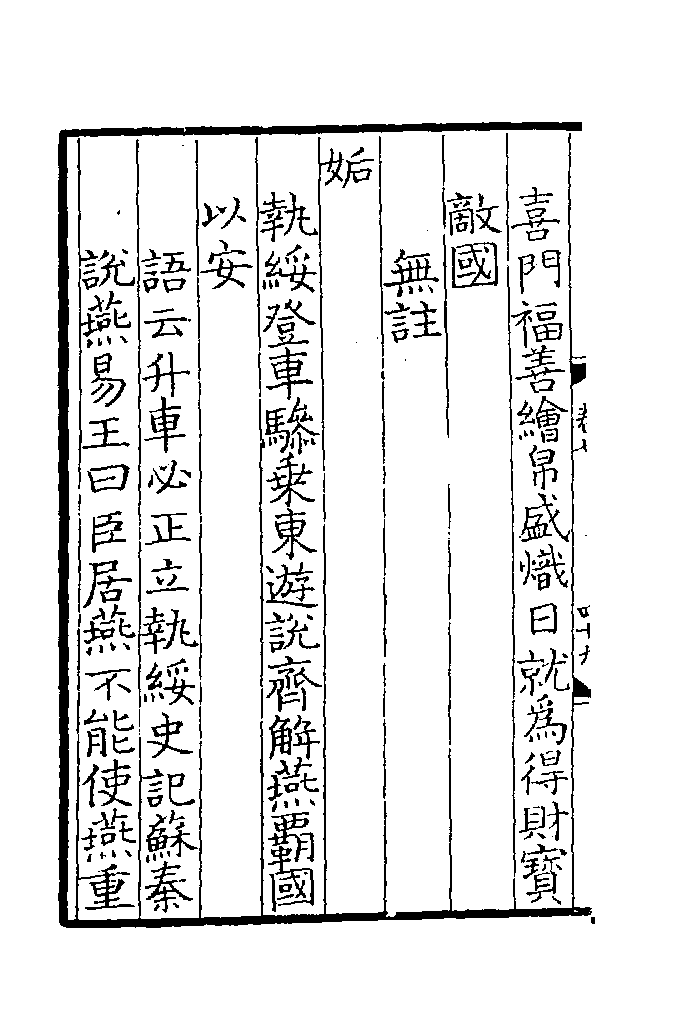 喜門福善繪帛盛熾日就為得財寶
敵國
無註
姤
執綏登車驂乗東遊説齊解燕覇國
以安
語云升車必正立執綏史記蘇秦
說燕易王曰臣居燕不能使燕重